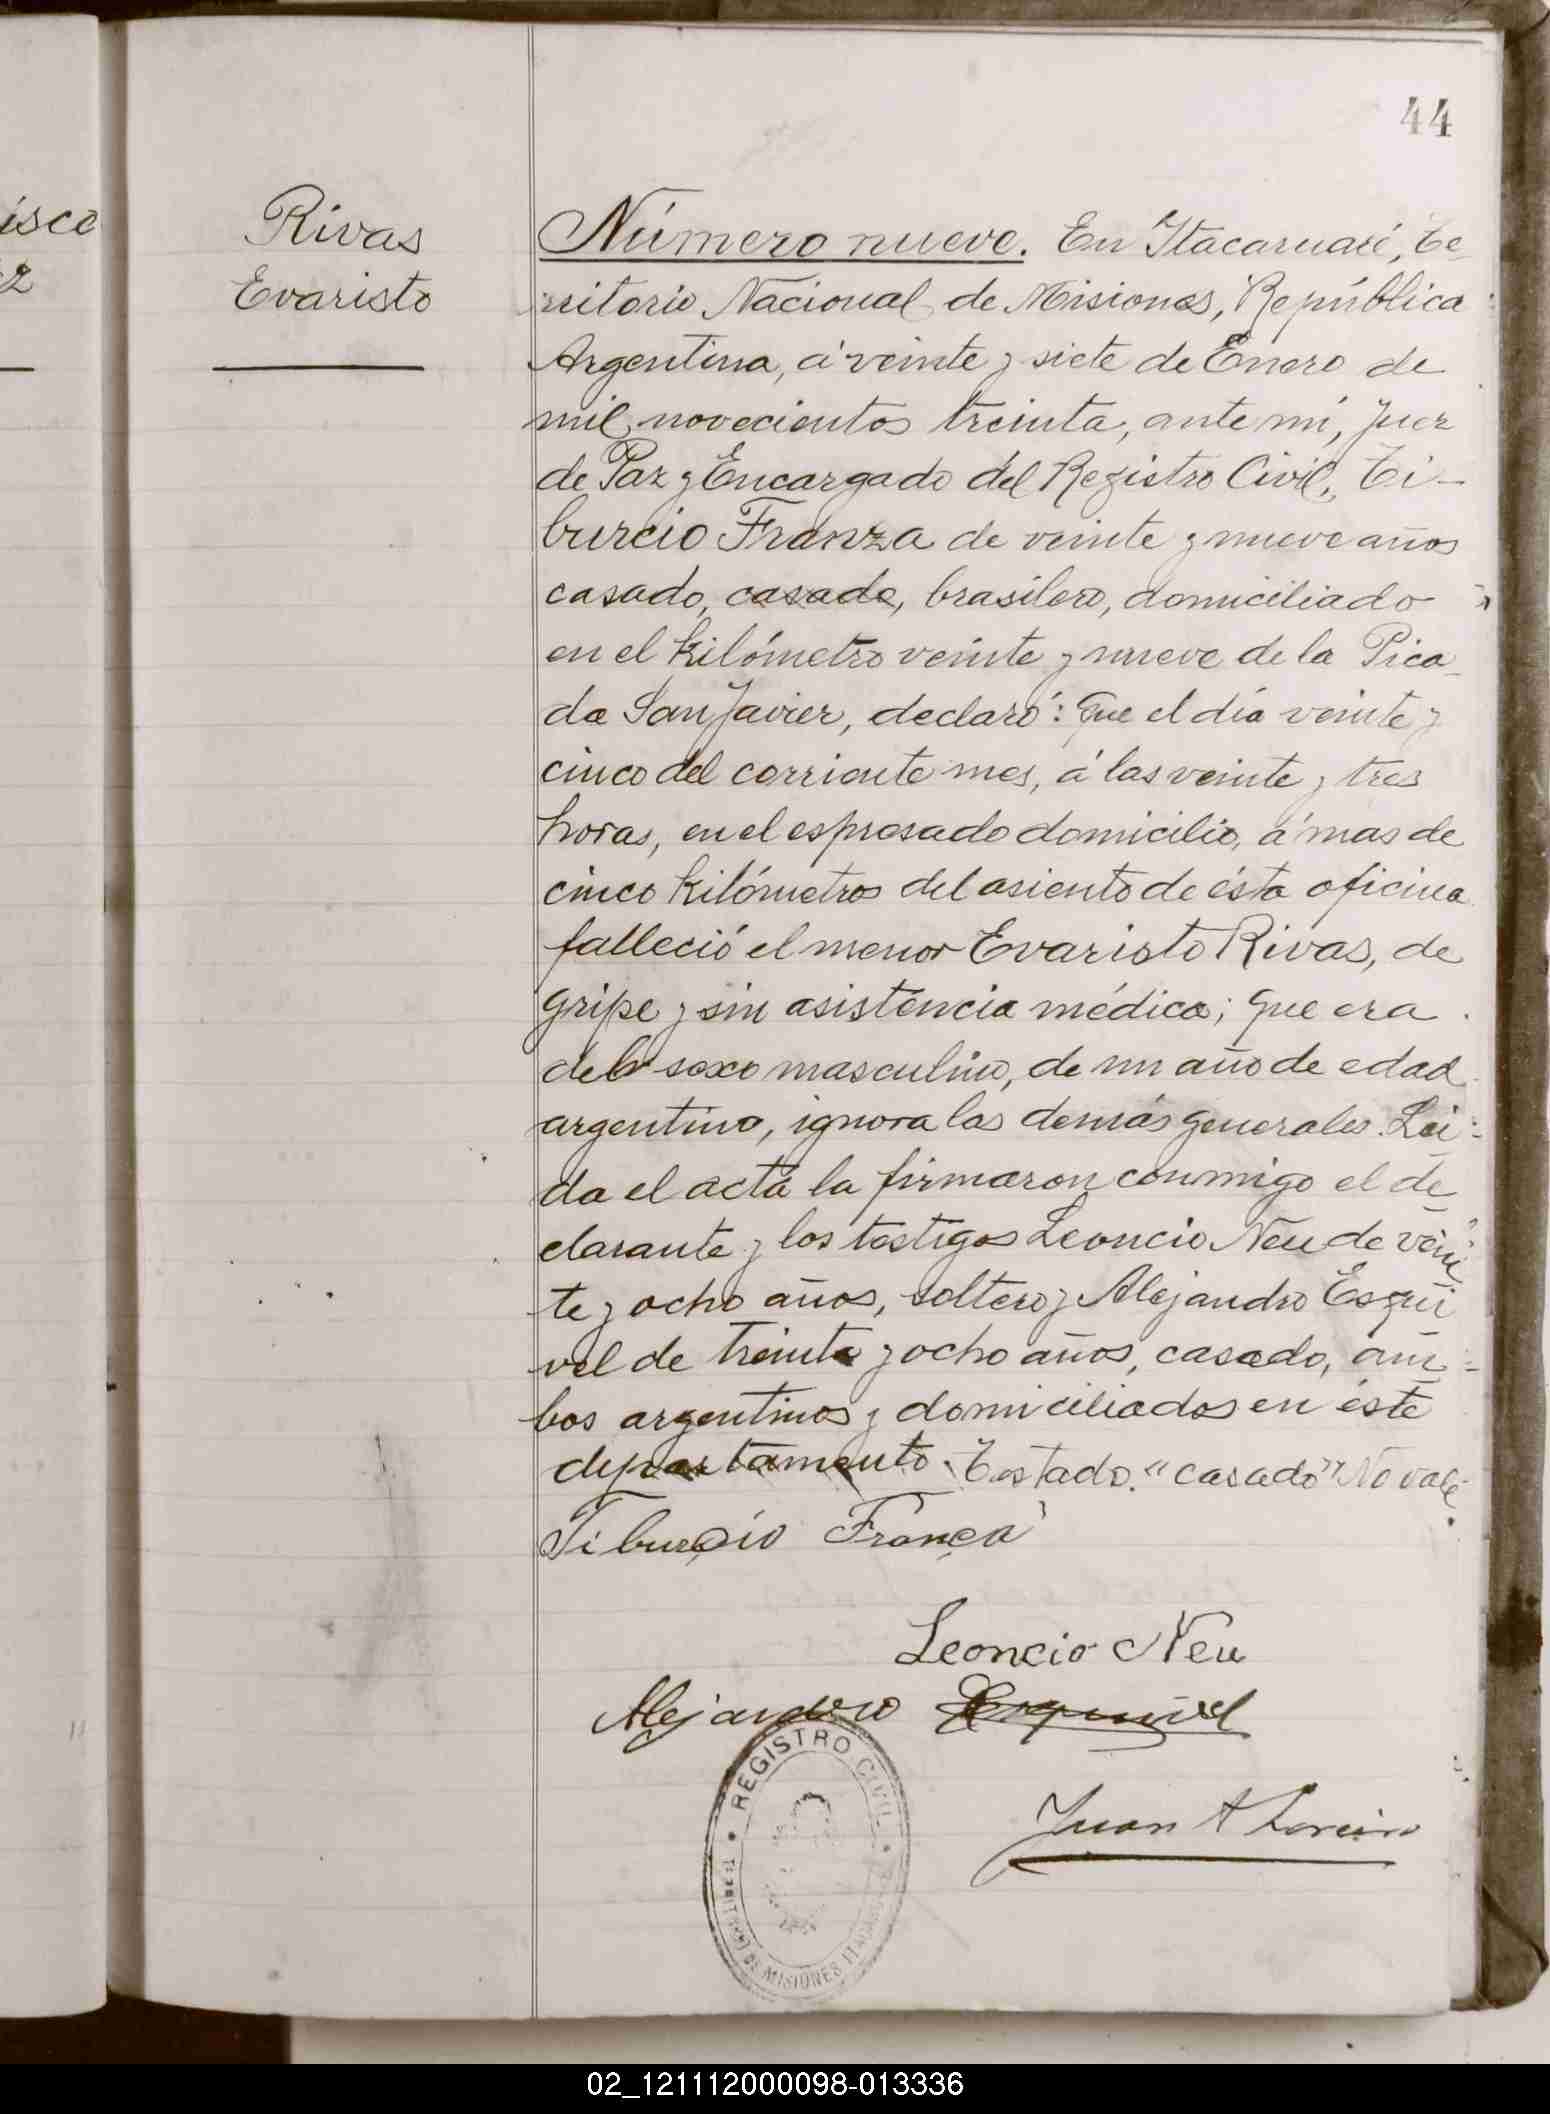 44
isco
z
Rivas
Evaristo
Número nueve. En Itacaruaré, Te-
rritorio Nacional de Misiones, República
Argentina, á veinte y siete de Enero de
mil novecientos treinta, ante mí, Juez
de Paz y Encargado del Registro Civil, Ti-
burcio Franza de veinte y nueve años
casado, casado, brasilero, domiciliado
en el kilómetro veinte y nueve de la Pica-
da San Javier, declaró: Que el día veinte y
cinco del corriente mes, á las veinte y tres
horas, en el espresado domicilio, á mas de
cinco kilómetros del asiento de ésta oficina
falleció el menor Evaristo Rivas, de
gripe y sin asistencia médica; que era
del sexo masculino, de un año de edad
argentino, ignora las demás generales. Lei-
da el acta la firmaron conmigo el de
clarante y los testigos Leoncio Neu de vein
te y ocho años, soltero y Alejandro Esqui
vel de treinta y ocho años, casado, am-
bos argentinos y domiciliados en éste
departamento. Testado. "casado" No vale.
Tiburcio França
Leoncio Neu
Alejandro Esquivel
Juan A
REGISTRO CIVIL
TERRITORIO DE MISIONES
02_121112000098-013336